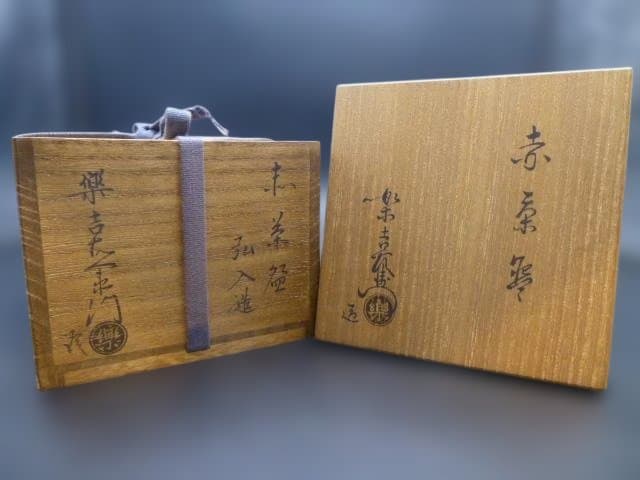 赤茶盌
弘入造
樂吉左衛門
樂
赤茶盌
樂吉左衛門
造
樂